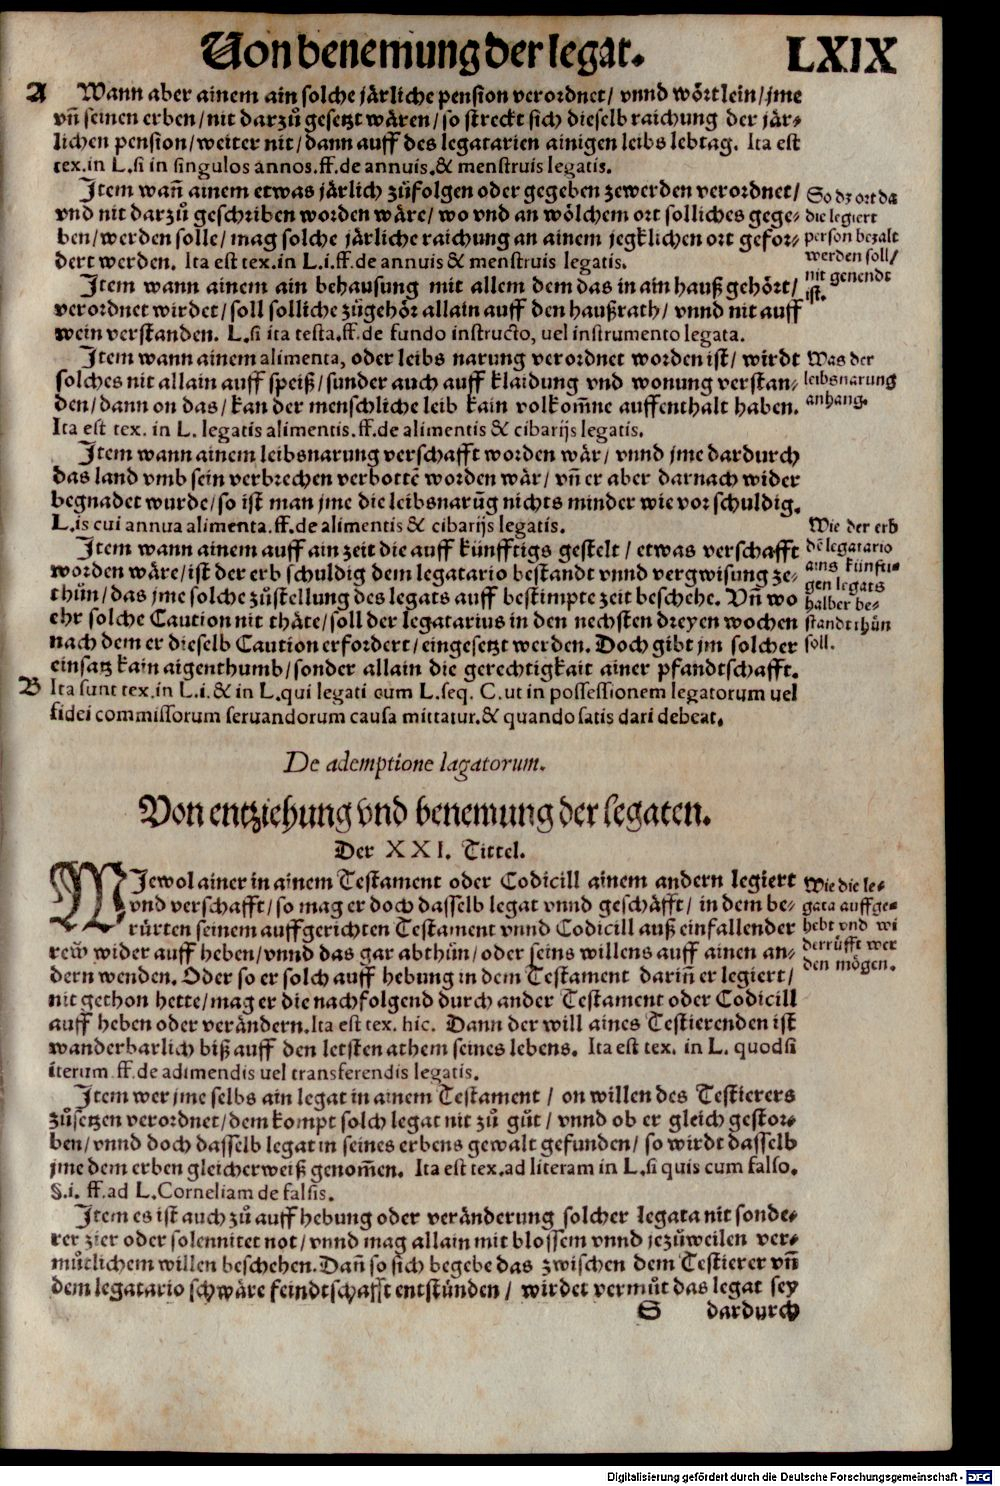 Von benemung der legat. LXIX
A Wann aber ainem ain solche järliche pension verordnet/ vnnd wörtlein/ jme
vñ seinen erben/ nit darzů gesetzt wären/ so streckt sich dieselb raichung der jär-
lichen pension/ weiter nit/ dann auff des legatarien ainigen leibs lebtag. Ita est
tex. in L. si in singulos annos. ff. de annuis. & menstruis legatis.
Item wañ ainem etwas järlich zůfolgen oder gegeben zewerden verordnet/
vnd nit darzů geschriben worden wäre/ wo vnd an wölchem ort solliches gege-
ben/ werden solle/ mag solche järliche raichung an ainem jegklichen ort gefor-
dert werden. Ita est tex. in L. i. ff. de annuis & menstruis legatis.
So dz ort da
die legiert
person bezalt
werden soll/
nit genendt
ist.
Item wann ainem ain behausung mit allem dem das in ain hauß gehört/
verordnet wirdet/ soll solliche zůgehör allain auff den haußrath/ vnnd nit auff
wein verstanden. L. si ita testa. ff. de fundo instructo, uel instrumento legata.
Item wann ainem alimenta, oder leibs narung verordnet worden ist/ wirdt
solches nit allain auff speiß/ sunder auch auff klaidung vnd wonung verstan-
den/ dann on das/ kan der menschliche leib kain volkom̄ne auffenthalt haben.
Ita est tex. in L. legatis alimentis. ff. de alimentis & cibarijs legatis.
Was der
leibsnarung
anhang.
Item wann ainem leibsnarung verschafft worden wär/ vnnd jme dardurch
das land vmb sein verbrechen verbottẽ worden wär/ vñ er aber darnach wider
begnadet wurde/ so ist man jme die leibsnarũg nichts minder wie vor schuldig.
L. is cui annua alimenta. ff. de alimentis & cibarijs legatis.
Item wann ainem auff ain zeit die auff künfftigs gestelt/ etwas verschafft
worden wäre/ ist der erb schuldig dem legatario bestandt vnnd vergwisung ze-
thůn/ das jme solche zůstellung des legats auff bestimpte zeit beschehe. Vñ wo
ehr solche Caution nit thäte/ soll der legatarius in den nechsten dreyen wochen
nach dem er dieselb Caution erfordert/ eingesetzt werden. Doch gibt jm solcher
einsatz kain aigenthumb/ sonder allain die gerechtigkait ainer pfandtschafft.
B Ita sunt tex. in L. i. & in L. qui legati cum L. seq. C. ut in possessionem legatorum uel
fidei commissorum seruandorum causa mittatur. & quando satis dari debeat.
Wie der erb
dẽ legatario
ains künfti-
gen legats
halber be-
standt thůn
soll.
De ademptione lagatorum.
Von entziehung vnd benemung der legaten.
Der XXI. Tittel.
WIewol ainer in ainem Testament oder Codicill ainem andern legiert
vnd verschafft/ so mag er doch dasselb legat vnnd geschäfft/ in dem be-
rürten seinem auffgerichten Testament vnnd Codicill auß einfallender
rew wider auff heben/ vnnd das gar abthůn/ oder seins willens auff ainen an-
dern wenden. Oder so er solch auff hebung in dem Testament dariñ er legiert/
nit gethon hette/ mag er die nachfolgend durch ander Testament oder Codicill
auff heben oder verändern. Ita est tex. hic. Dann der will aines Testierenden ist
wanderbarlich biß auff den letsten athem seines lebens. Ita est tex. in L. quod si
iterum ff. de adimendis uel transferendis legatis.
Wie die le-
gata auffge-
hebt vnd wi
derrüfft wer
den mögen.
Item wer jme selbs ain legat in ainem Testament/ on willen des Testierers
zůsetzen verordnet/ dem kompt solch legat nit zů gůt/ vnnd ob er gleich gestor-
ben/ vnnd doch dasselb legat in seines erbens gewalt gefunden/ so wirdt dasselb
jme dem erben gleicherweiß genom̄en. Ita est tex. ad literam in L. si quis cum falso.
§. i. ff. ad L. Corneliam de falsis.
Item es ist auch zů auff hebung oder veränderung solcher legata nit sonde-
rer zier oder solennitet not/ vnnd mag allain mit blossem vnnd jezůweilen ver-
můtlichem willen beschehen. Dañ so sich begebe das zwischen dem Testierer vñ
dem legatario schwäre feindtschafft entstünden/ wirdet vermůt das legat sey
S dardurch
Digitalisierung gefördert durch die Deutsche Forschungsgemeinschaft - DFG